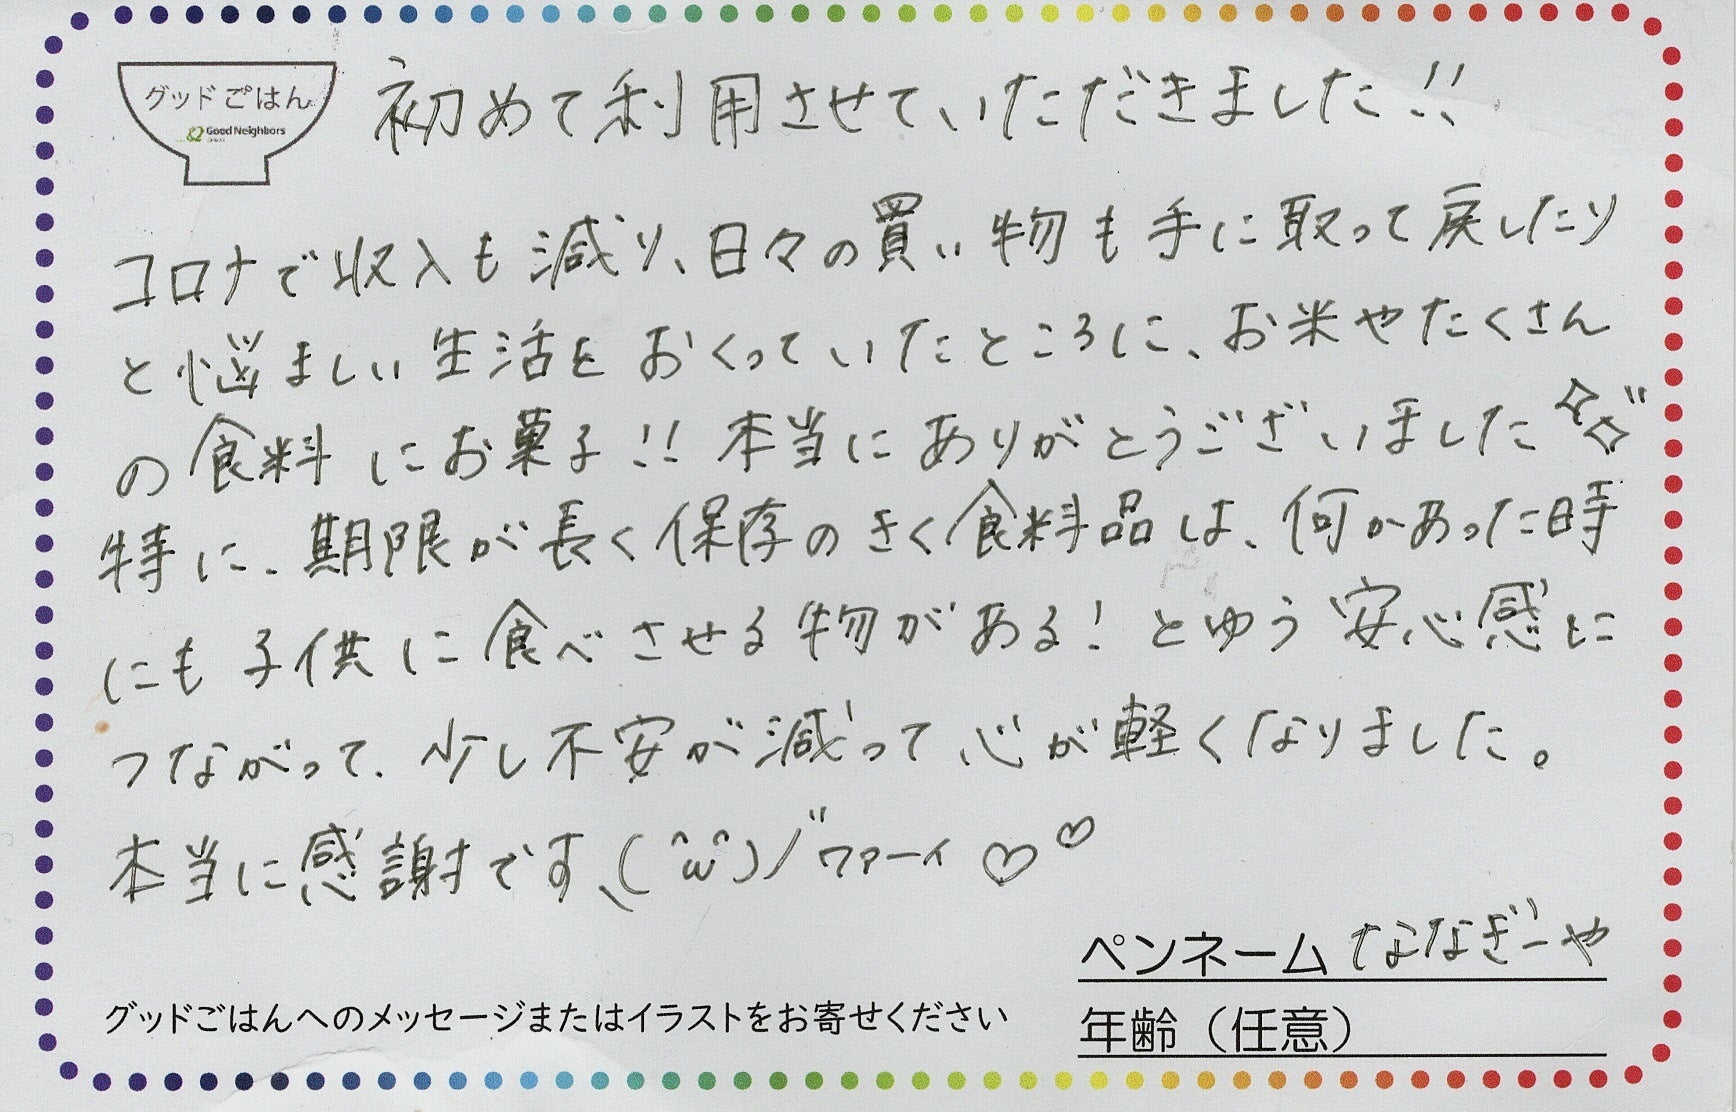 グッドごはん
Good Neighbors
初めて利用させていただきました!!
コロナで収入も減り、日々の買い物も手に取って戻したり
と悩ましい生活をおくっていたところに、お米やたくさん
の食料にお菓子!! 本当にありがとうございました
特に、期限が長く保存のきく食料品は、何かあった時
にも子供に食べさせる物がある! とゆう安心感に
つながって、少し不安が減って心が軽くなりました。
本当に感謝です、(^ω^)ノ゛ワァーィ♡♡
ペンネーム ななぎーや
グッドごはんへのメッセージまたはイラストをお寄せください
年齢（任意）